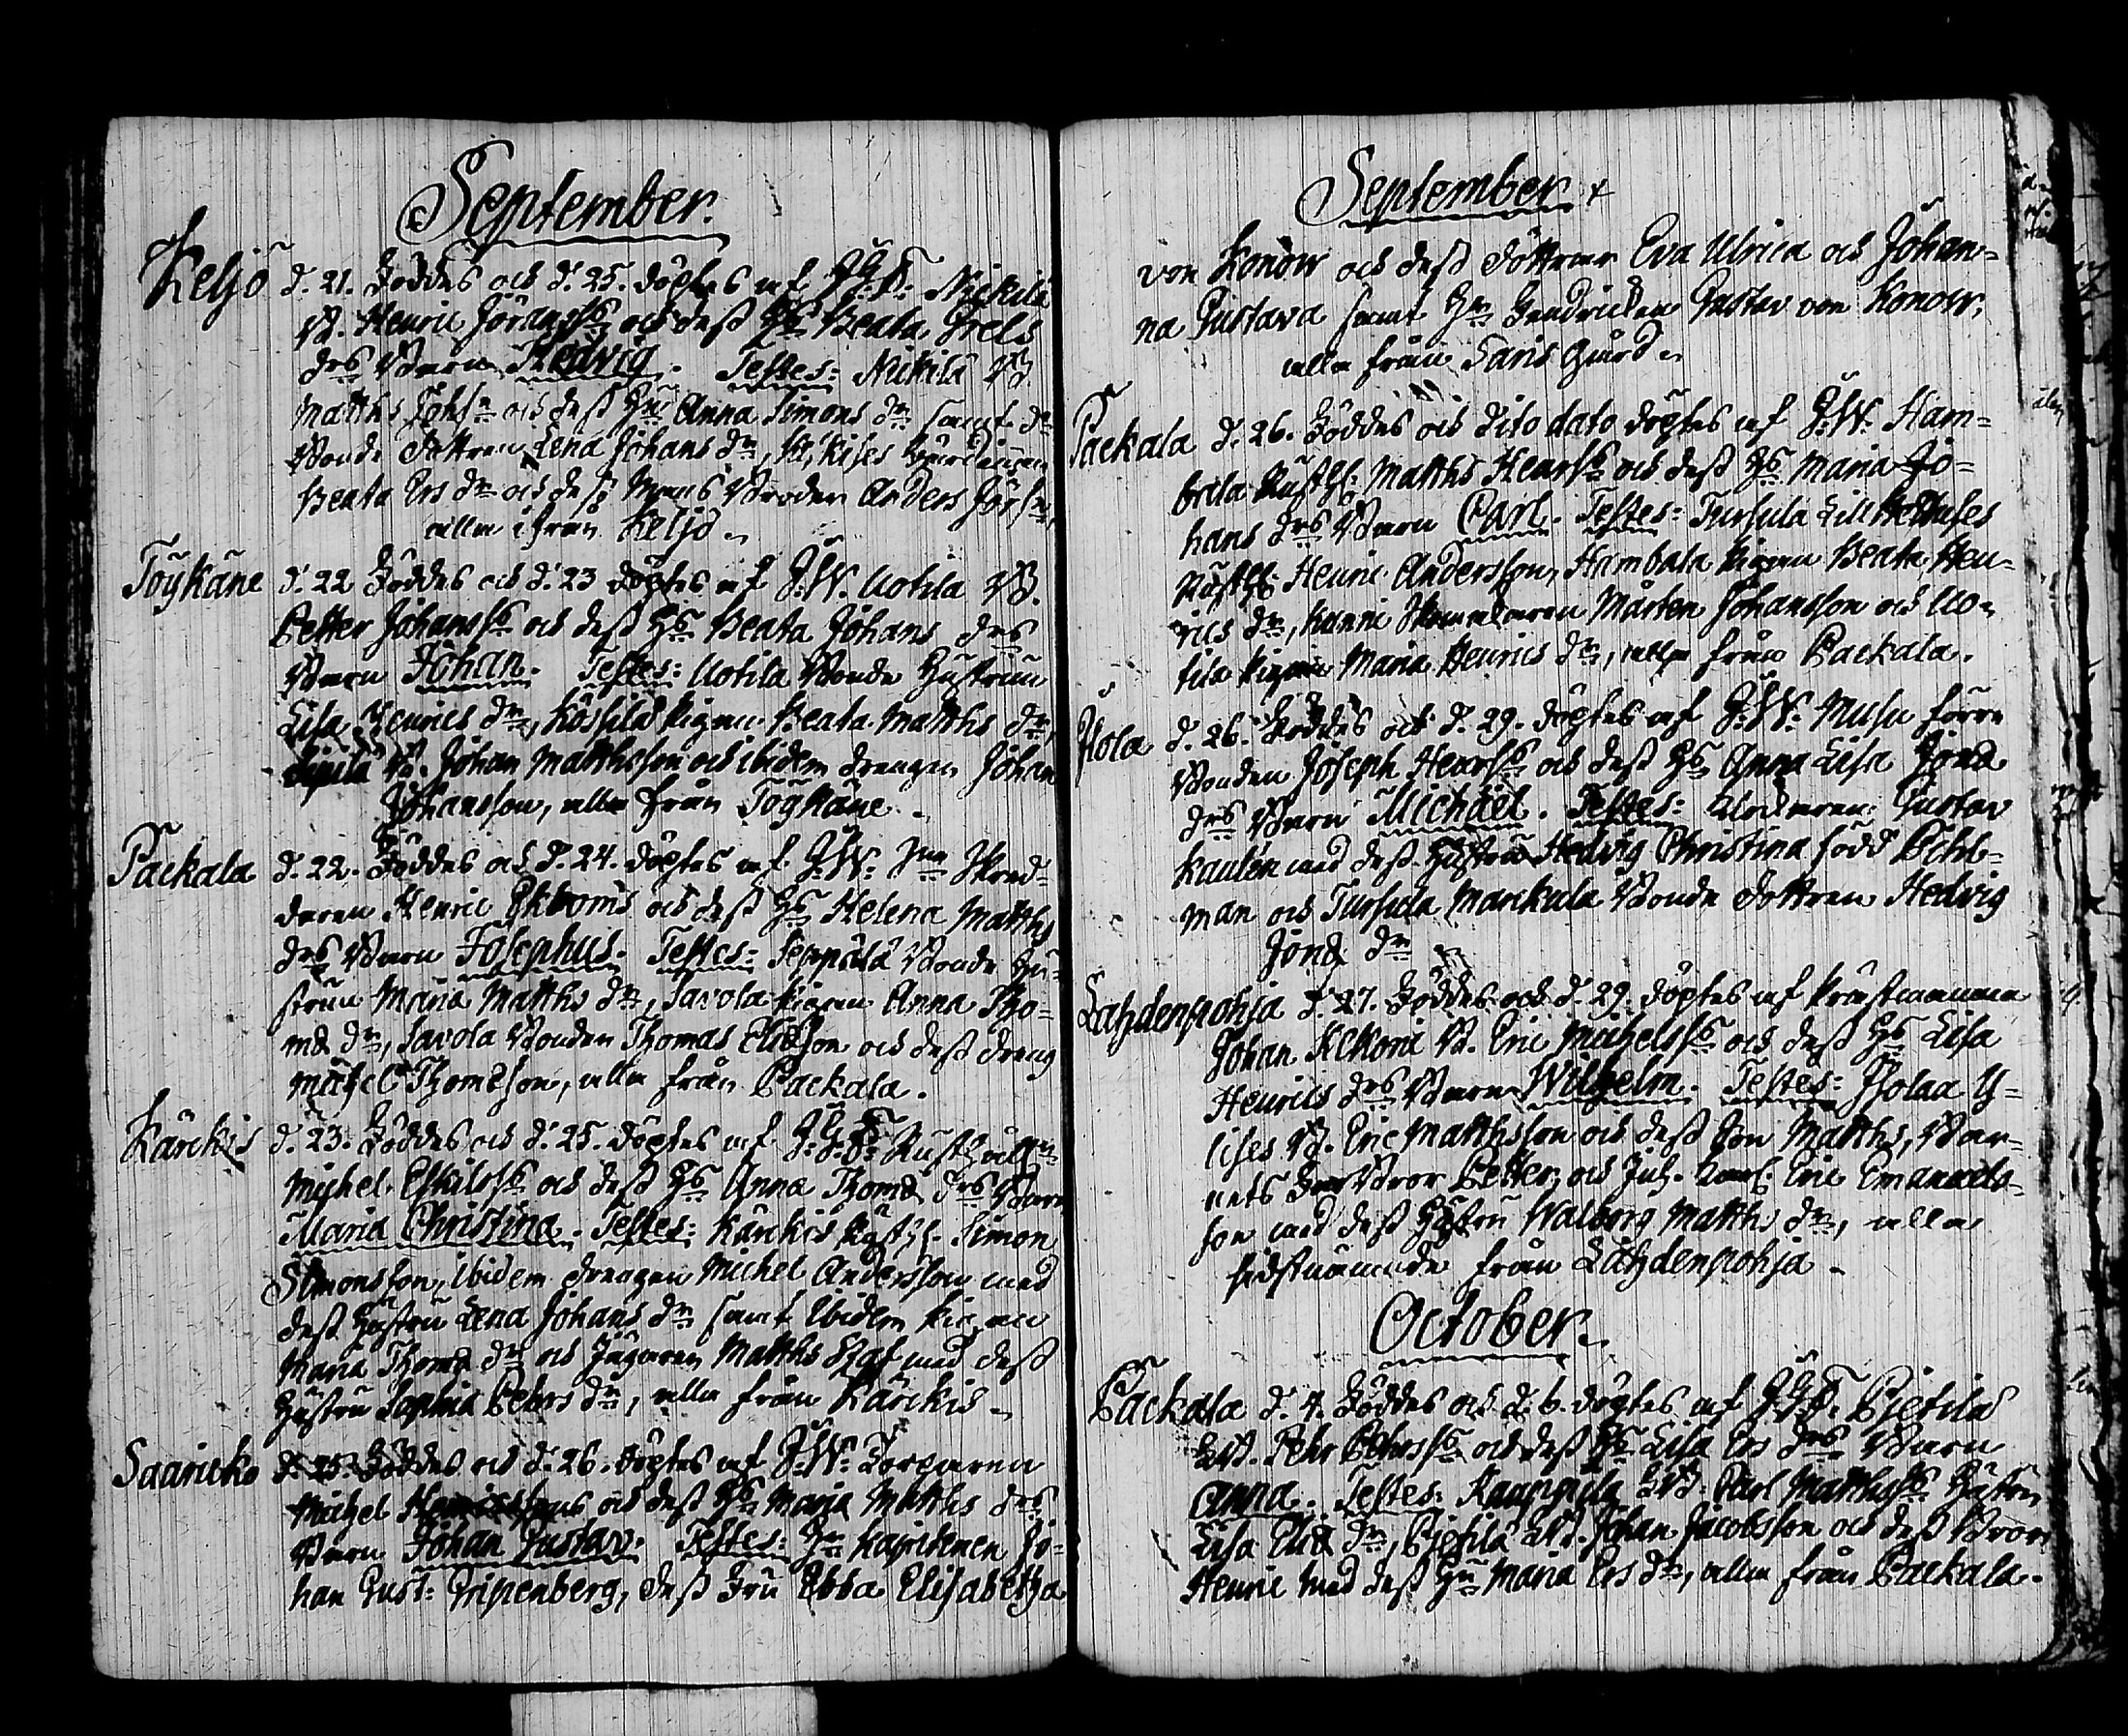 September.
Keljo d. 21. Föddes och d. 25. döptes af J.G.P. Nickilä
B. Henric Jöranss. och dess Hs Beata Grels
drs Barn Hedvig. Testes: Nickilä B.
Matths Johss:n och dess Hu Anna Simons dr samt dr
Bonde Dottren Lena Johans dr,
Beata Ers dr och dess Mans Broder Anders Jörss:n,
alla ifrån Keljo.
Töykäne d. 22 Föddes och d. 23 döptes af J.W. Uotila B.
Petter Johanss. och dess Hs Beata Johans drs
Barn Johan. Testes: Uotila Bonde Hustrun
Lisa Henrics dr, Kössilä Pigan Beata Matths dr,
Sipilä B. Johan Matthsson och ibidem drengen Johan
Johansson, alla från Töykäne.
Packala d. 22. Föddes och d. 24. döptes af J.W. Skred-
daren Henric Ekroms och dess Hs Helena Matths
drs Barn Josephus. Testes: Seppälä Bonde Hu-
strun Maria Matths dr, Savola Pigan Anna Tho-
mæ dr, Savola Bonden Thomas Eliæson och dess dreng
Michel Thomæson, alla från Packala.
Kärckis d. 23. Föddes och d. 25. döptes af J.G.P. Rusthåll:n
Michel Eskilss. och dess Hs Anna Thomæ drs Barn
Maria Christina. Testes: Kärckis Rusth. Simon
Simonsson, Ibidem drengen Michel Andersson med
dess Hustru Lena Johans dr samt Ibidem Pigan
Maria Thomæ dr och Jägaren Matths Elg med dess
Hustru Sophia Pehrs dr, alla från Kärckis.
Saaricko d. 25. Föddes och d. 26. döptes af J.W. Torparen
Michel och dess Hs Maria Matths drs
Barn Johan Gustav. Testes: Hr Kapitenen Jo-
han Gust: Gripenberg, dess Fru Ebba Elisabetha
September
von Konow och dess döttrar Eva Ulrica och Johan-
na Gustava samt Hr Gustav von Konow,
alla från Saris gård.
Packala d. 26. Föddes och dito dato döptes af J.W. Ham-
brila Rusth. Matths Henrss. och dess Hs Maria Jo-
hans drs Barn Carl. Testes: Tursula Lill
Rusth. Henric Andersson, Hambala Pigan Beata Hen-
rics dr, Mårten Johansson och Uo-
tila Pigan Maria Henrics dr, alla från Packala.
Hola d. 26. Föddes och d. 29. döptes af J.W. Musu förra
Bonden Joseph Henrss. och dess Hs Anna Lisa Jonæ
drs Barn Michael. Testes: Gustav
Kaulén med dess Hustru Hedvig Christina född
man och Tursula Marckula Bonde Dottren Hedvig
Jonæ dr
Lahdenpohja d. 27. Föddes och d. 29. döptes af Prostmannen
Johan B. Eric Michelss. och dess Hs Lisa
Henrics drs Barn Wilhelm. Testes: Y-
lises B. Eric Matthsson och dess Son Matths, Bar-
nets Bror Petter, och Eric Emanuels-
son med dess Hustru Walborg Matths dr, alla
sidstnämnde från Lahdenpohja.
October.
Packala d. 4. Föddes och d. 6. döptes af J.G.P. Pietilä
B. Pehr Pehrss. och dess Hs Lisa Ers drs Barn
Anna. Testes: Kauppila B. Carl Matthss. Hustru
Lisa Eliæ dr, Pietilä B. Johan Jacobsson och dess Bror
Henric med dess Hu Maria Ers dr, alla från Packala.